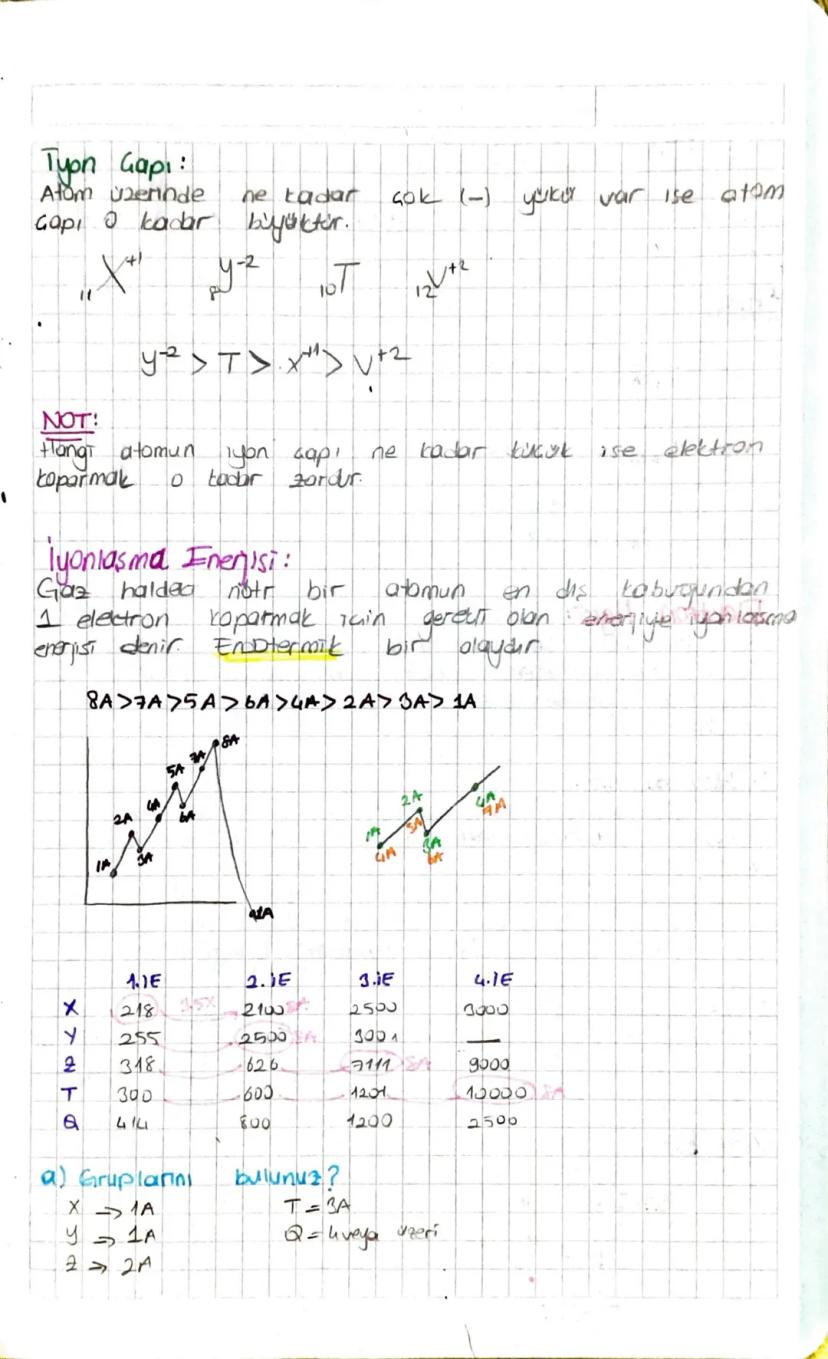 İyon Çapı:
Atom üzerinde ne kadar çok (-) yükü var ise atom
çapı o kadar büyüktür.
₁₁X⁺¹ ₈y⁻² ₁₀T ₁₂V⁺²
y⁻² > T > x⁺¹ > V⁺²
NOT:
Hangi atomun iyon çapı ne kadar küçük ise elektron
koparmak o kadar zordur.
İyonlaşma Enerjisi:
Gaz haldea nötr bir atomun en dış kabuğundan
1 elektron koparmak için gerekli olan enerjiye iyonlaşma
enerjisi denir. Endotermik bir olaydır.
8A>7A>5A>6A>4A>2A>3A>1A
8A
7A
5A
4A 6A
2A
1A 3A
1A
2A
1A 5A 4A 7A
4A 3A
6A
1.İE 2.İE 3.İE 4.İE
X 218 3.5X 2100 8A 2500 3000
Y 255 2500 8A 3001 —
Z 318 626 7111 8A 9000
T 300 600 1201 10000 8A
Q 414 800 1200 2500
a) Gruplarını bulunuz?
X → 1A T = 3A
Y → 1A Q = 4 veya üzeri
Z → 2A